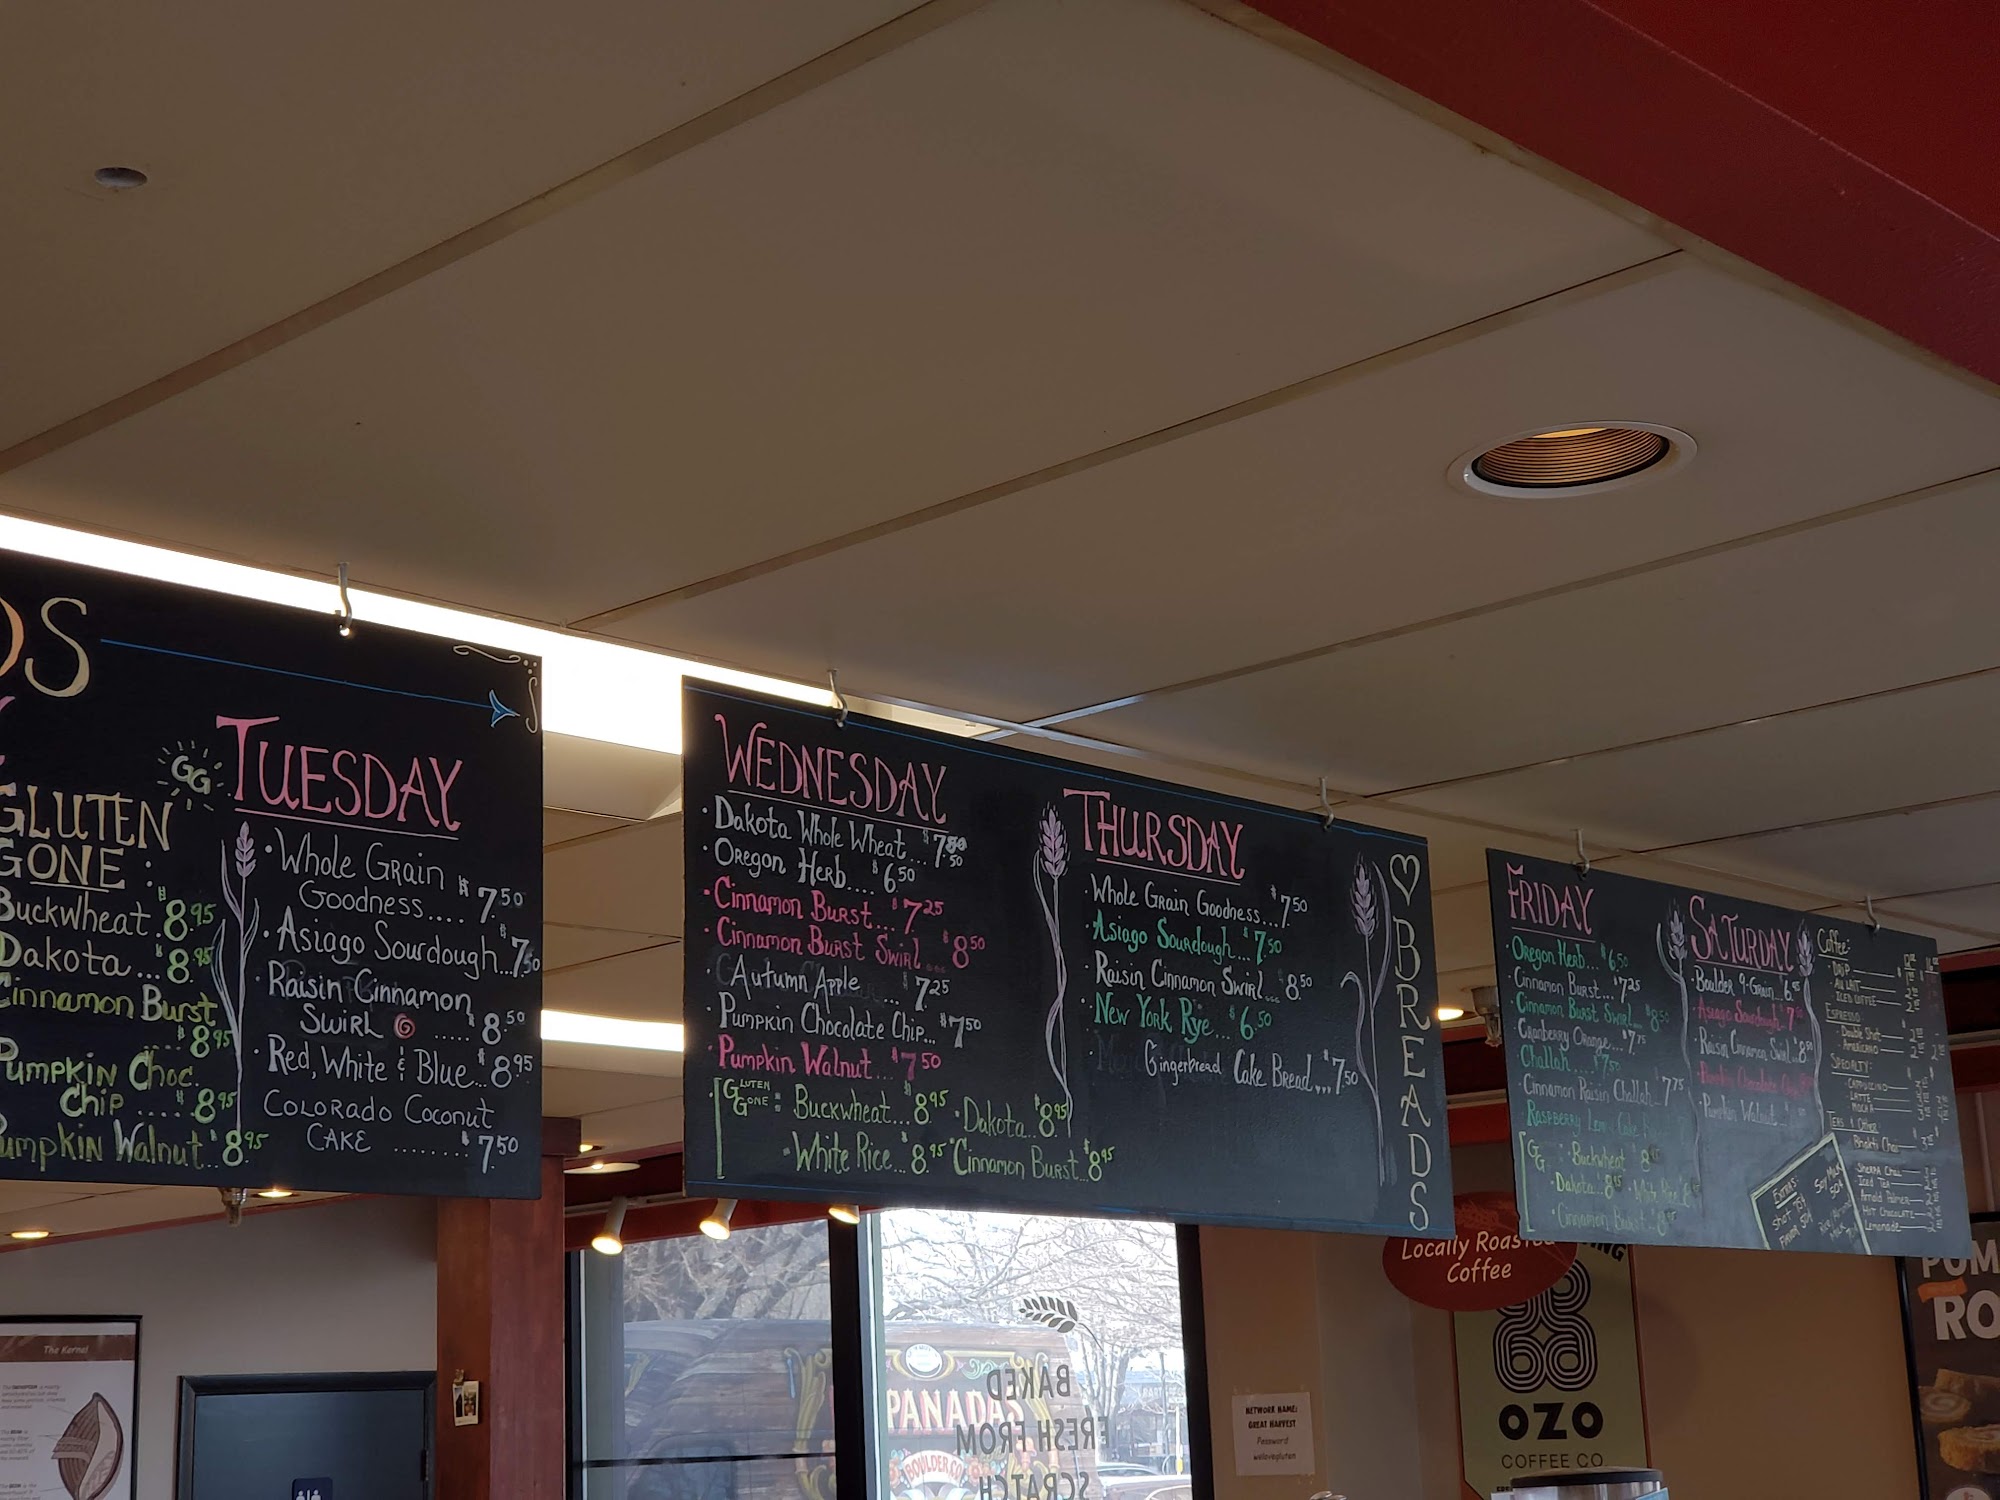 DS
GLUTEN
GONE:
Buckwheat $8.95
Dakota... $8.95
Cinnamon Burst
..... $8.95
Pumpkin Choc.
Chip ..... $8.95
Pumpkin Walnut.. $8.95
GG
TUESDAY
• Whole Grain
Goodness.... $7.50
• Asiago Sourdough... $7.50
• Raisin Cinnamon
Swirl ..... $8.50
• Red, White & Blue... $8.95
Colorado Coconut
Cake ......... $7.50
WEDNESDAY
• Dakota Whole Wheat... $7.50
• Oregon Herb.... $6.50
• Cinnamon Burst... $7.25
• Cinnamon Burst Swirl... $8.50
• Autumn Apple ... $7.25
• Pumpkin Chocolate Chip... $7.50
• Pumpkin Walnut... $7.50
Gluten
Gone:
Buckwheat... $8.95 • Dakota.. $8.95
White Rice... $8.95 • Cinnamon Burst.. $8.95
THURSDAY
• Whole Grain Goodness... $7.50
• Asiago Sourdough... $7.50
• Raisin Cinnamon Swirl... $8.50
• New York Rye... $6.50
Gingerbread Cake Bread... $7.50
BREADS
FRIDAY
• Oregon Herb... $6.50
• Cinnamon Burst... $7.25
• Cinnamon Burst Swirl... $8.50
• Cranberry Orange... $7.75
• Challah... $7.50
• Cinnamon Raisin Challah.. $7.75
GG
• Buckwheat $8.95
• Dakota.. $8.95 • White Rice
• Cinnamon Burst..
SATURDAY
• Boulder 9-Grain...
• Asiago Sourdough..
• Raisin Cinnamon Swirl..
• Pumpkin Chocolate Chip
• Pumpkin Walnut...
Coffee:
- Drip
- Au Lait
- Iced Coffee
Espresso
- Double Shot
- Americano
Specialty:
- Cappuccino
- Latte
- Mocha
Teas & Other
Bhakti Chai
Sherpa Chai
Iced Tea
Arnold Palmer
Hot Chocolate
Lemonade
Extras:
Shot 75¢
Flavor 50¢
Soy Milk
50¢
The Kernel
PANADAS
BOULDER CO
BAKED
FRESH FROM
SCRATCH
NETWORK NAME:
GREAT HARVEST
Password
welovegluten
Locally Roasted
Coffee
OZO
COFFEE CO
PUM
RO